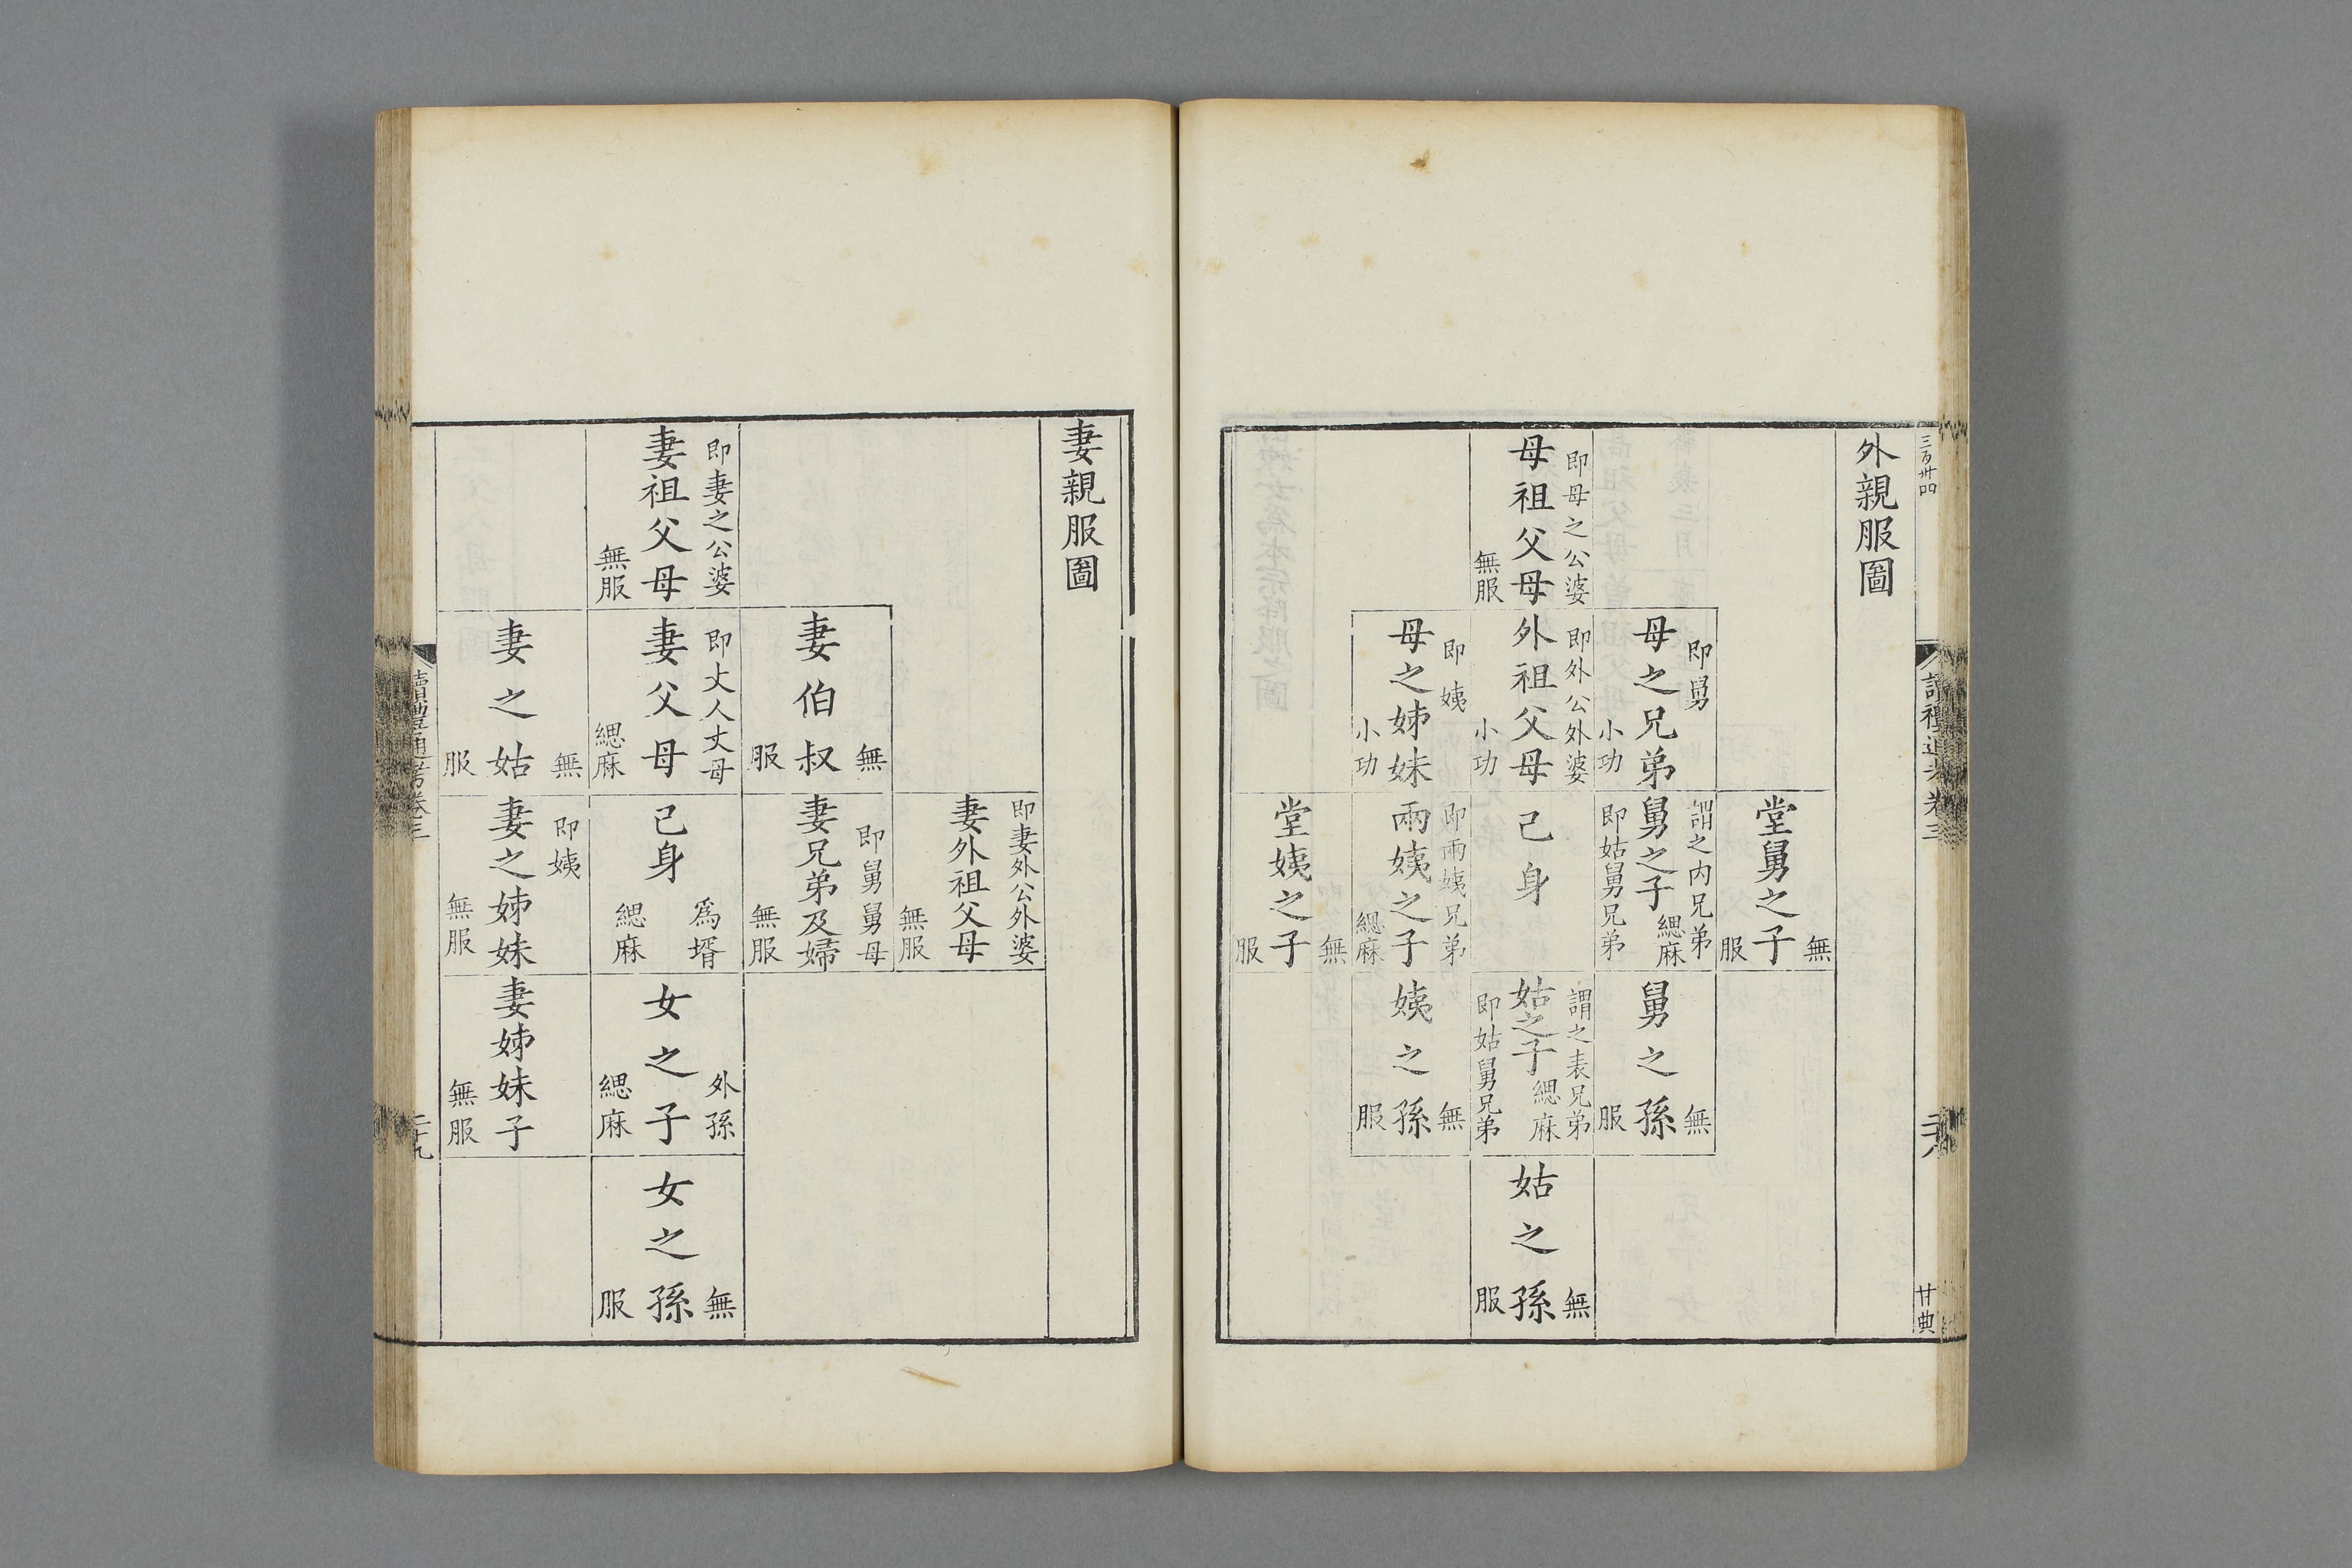 三百卅四
讀禮通考卷三
二十八
甘典
外親服圖
母祖父母
即母之公婆
無服
母之兄弟
即舅
小功
外祖父母
即外公外婆
小功
母之姊妹
即姨
小功
堂舅之子
無服
舅之子
謂之内兄弟
即姑舅兄弟
緦麻
己身
兩姨之子
即兩姨兄弟
緦麻
堂姨之子
無服
舅之孫
無服
姑之子
謂之表兄弟
即姑舅兄弟
緦麻
姨之孫
無服
姑之孫
無服
妻親服圖
妻祖父母
即妻之公婆
無服
妻伯叔
無服
妻父母
即丈人丈母
緦麻
妻之姑
無服
妻外祖父母
即妻外公外婆
無服
妻兄弟及婦
即舅舅母
無服
己身
爲壻
緦麻
妻之姊妹
即姨
無服
女之子
外孫
緦麻
妻姊妹子
無服
女之孫
無服
讀禮通考卷三
二十九